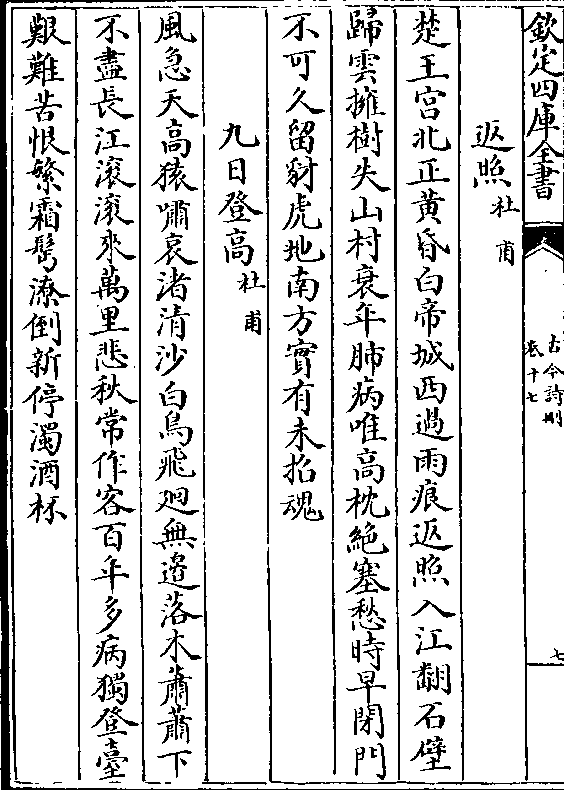 欽定四庫全書
古今詩刪
卷十七
七
返照 杜甫
楚王宮北正黃昏白帝城西過雨痕返照入江翻石壁
歸雲擁樹失山村衰年肺病唯高枕絶塞愁時早閉門
不可久留豺虎地南方實有未招魂
九日登高 杜甫
風急天高猿嘯哀渚清沙白鳥飛廻無邉落木蕭蕭下
不盡長江滾滾來萬里悲秋常作客百年多病獨登臺
艱難苦恨繁霜鬢潦倒新停濁酒杯